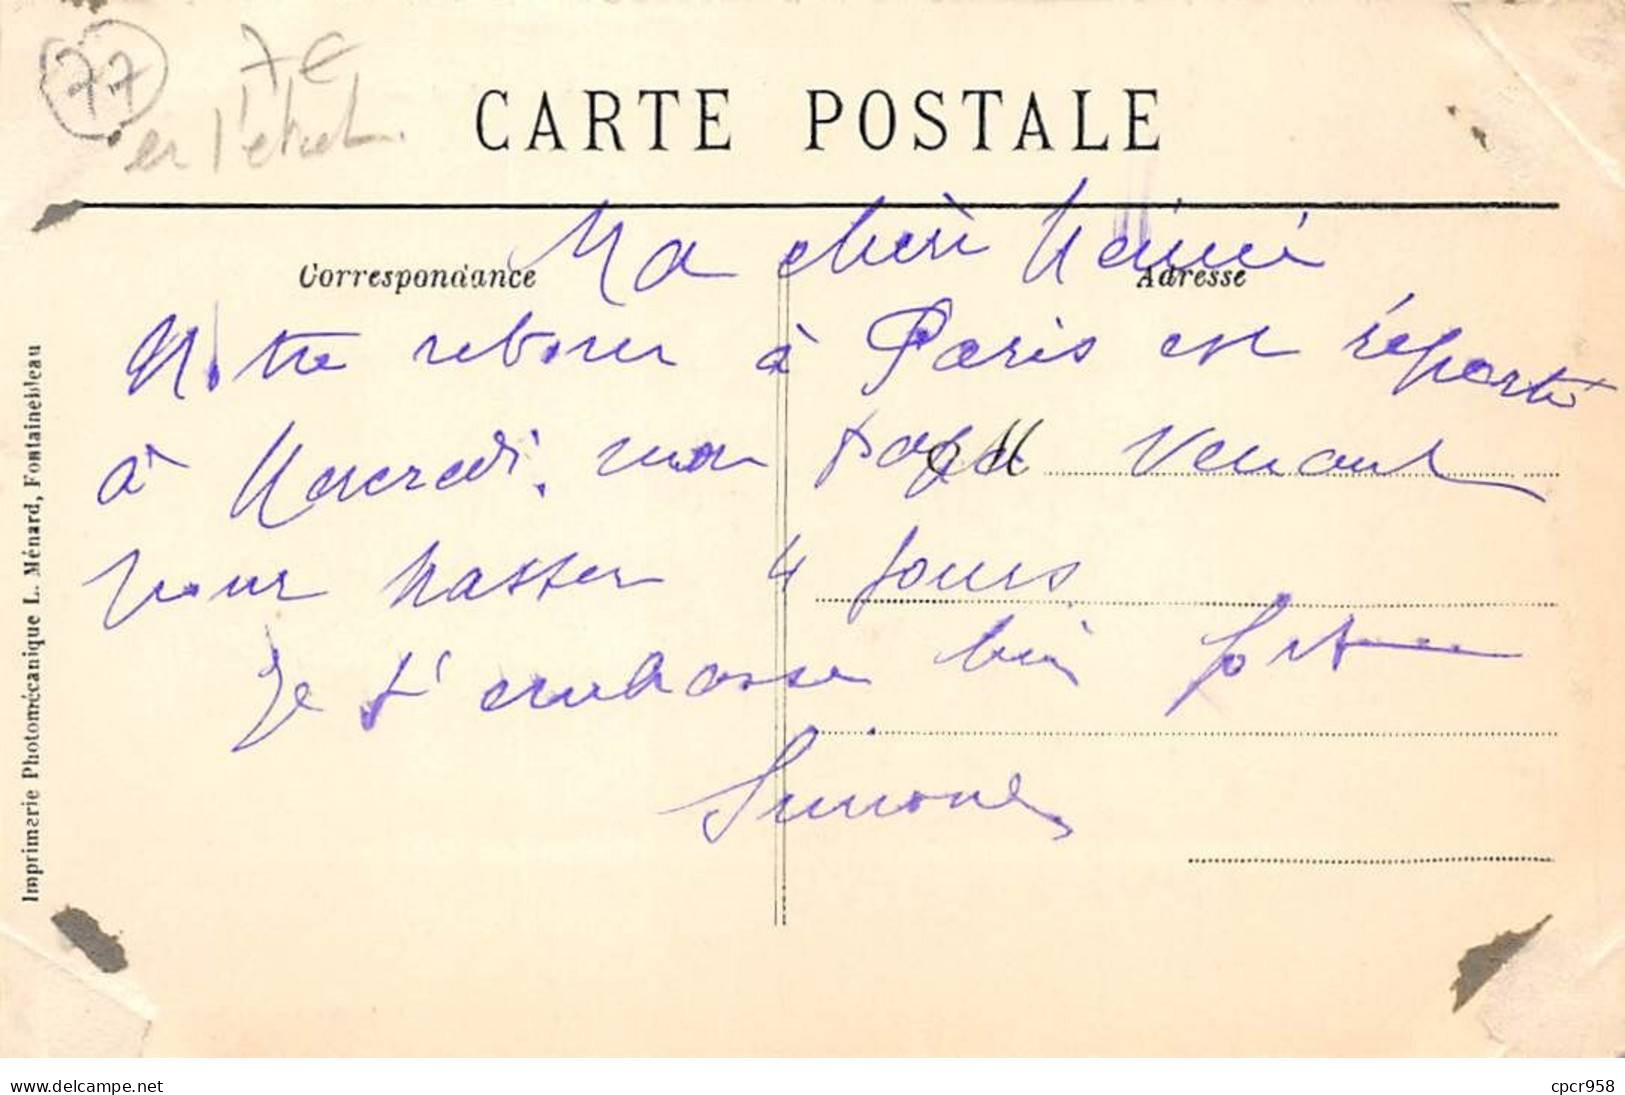 77
7€
en l'état.
CARTE POSTALE
Correspondance
Adresse
Ma chère Mémé
Notre retour à Paris est reporté
à Mercredi, mon papa venant
pour passer 4 jours
Je t'embrasse bien fort
Simone
Imprimerie Photomécanique L. Ménard, Fontainebleau
delcampe.net
cpcr958